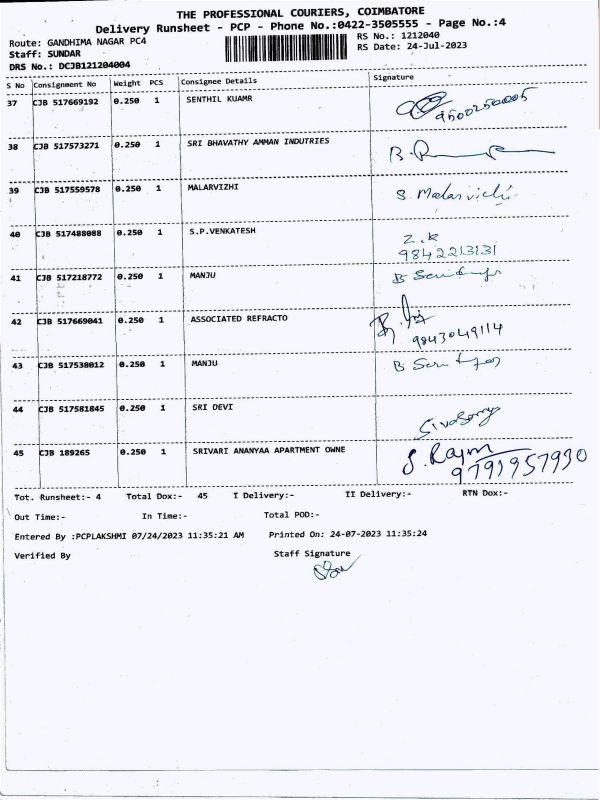 THE PROFESSIONAL COURIERS, COIMBATORE
Delivery Runsheet - PCP - Phone No.:0422-3505555 - Page No.:4
Route: GANDHIMA NAGAR PC4 RS No.: 1212040
Staff: SUNDAR RS Date: 24-Jul-2023
DRS No.: DCJB121204004
S No Consignment No Weight PCS Consignee Details Signature
37 CJB 517669192 0.250 1 SENTHIL KUAMR
9500250005
38 CJB 517573271 0.250 1 SRI BHAVATHY AMMAN INDUTRIES
39 CJB 517559578 0.250 1 MALARVIZHI S. Malarvizhi
40 CJB 517488088 0.250 1 S.P.VENKATESH
9842213131
41 CJB 517218772 0.250 1 MANJU
42 CJB 517669041 0.250 1 ASSOCIATED REFRACTO
9843049114
43 CJB 517538012 0.250 1 MANJU
44 CJB 517581845 0.250 1 SRI DEVI
45 CJB 189265 0.250 1 SRIVARI ANANYAA APARTMENT OWNE
9791957930
Tot. Runsheet:- 4 Total Dox:- 45 I Delivery:- II Delivery:- RTN Dox:-
Out Time:- In Time:- Total POD:-
Entered By :PCPLAKSHMI 07/24/2023 11:35:21 AM Printed On: 24-07-2023 11:35:24
Verified By Staff Signature